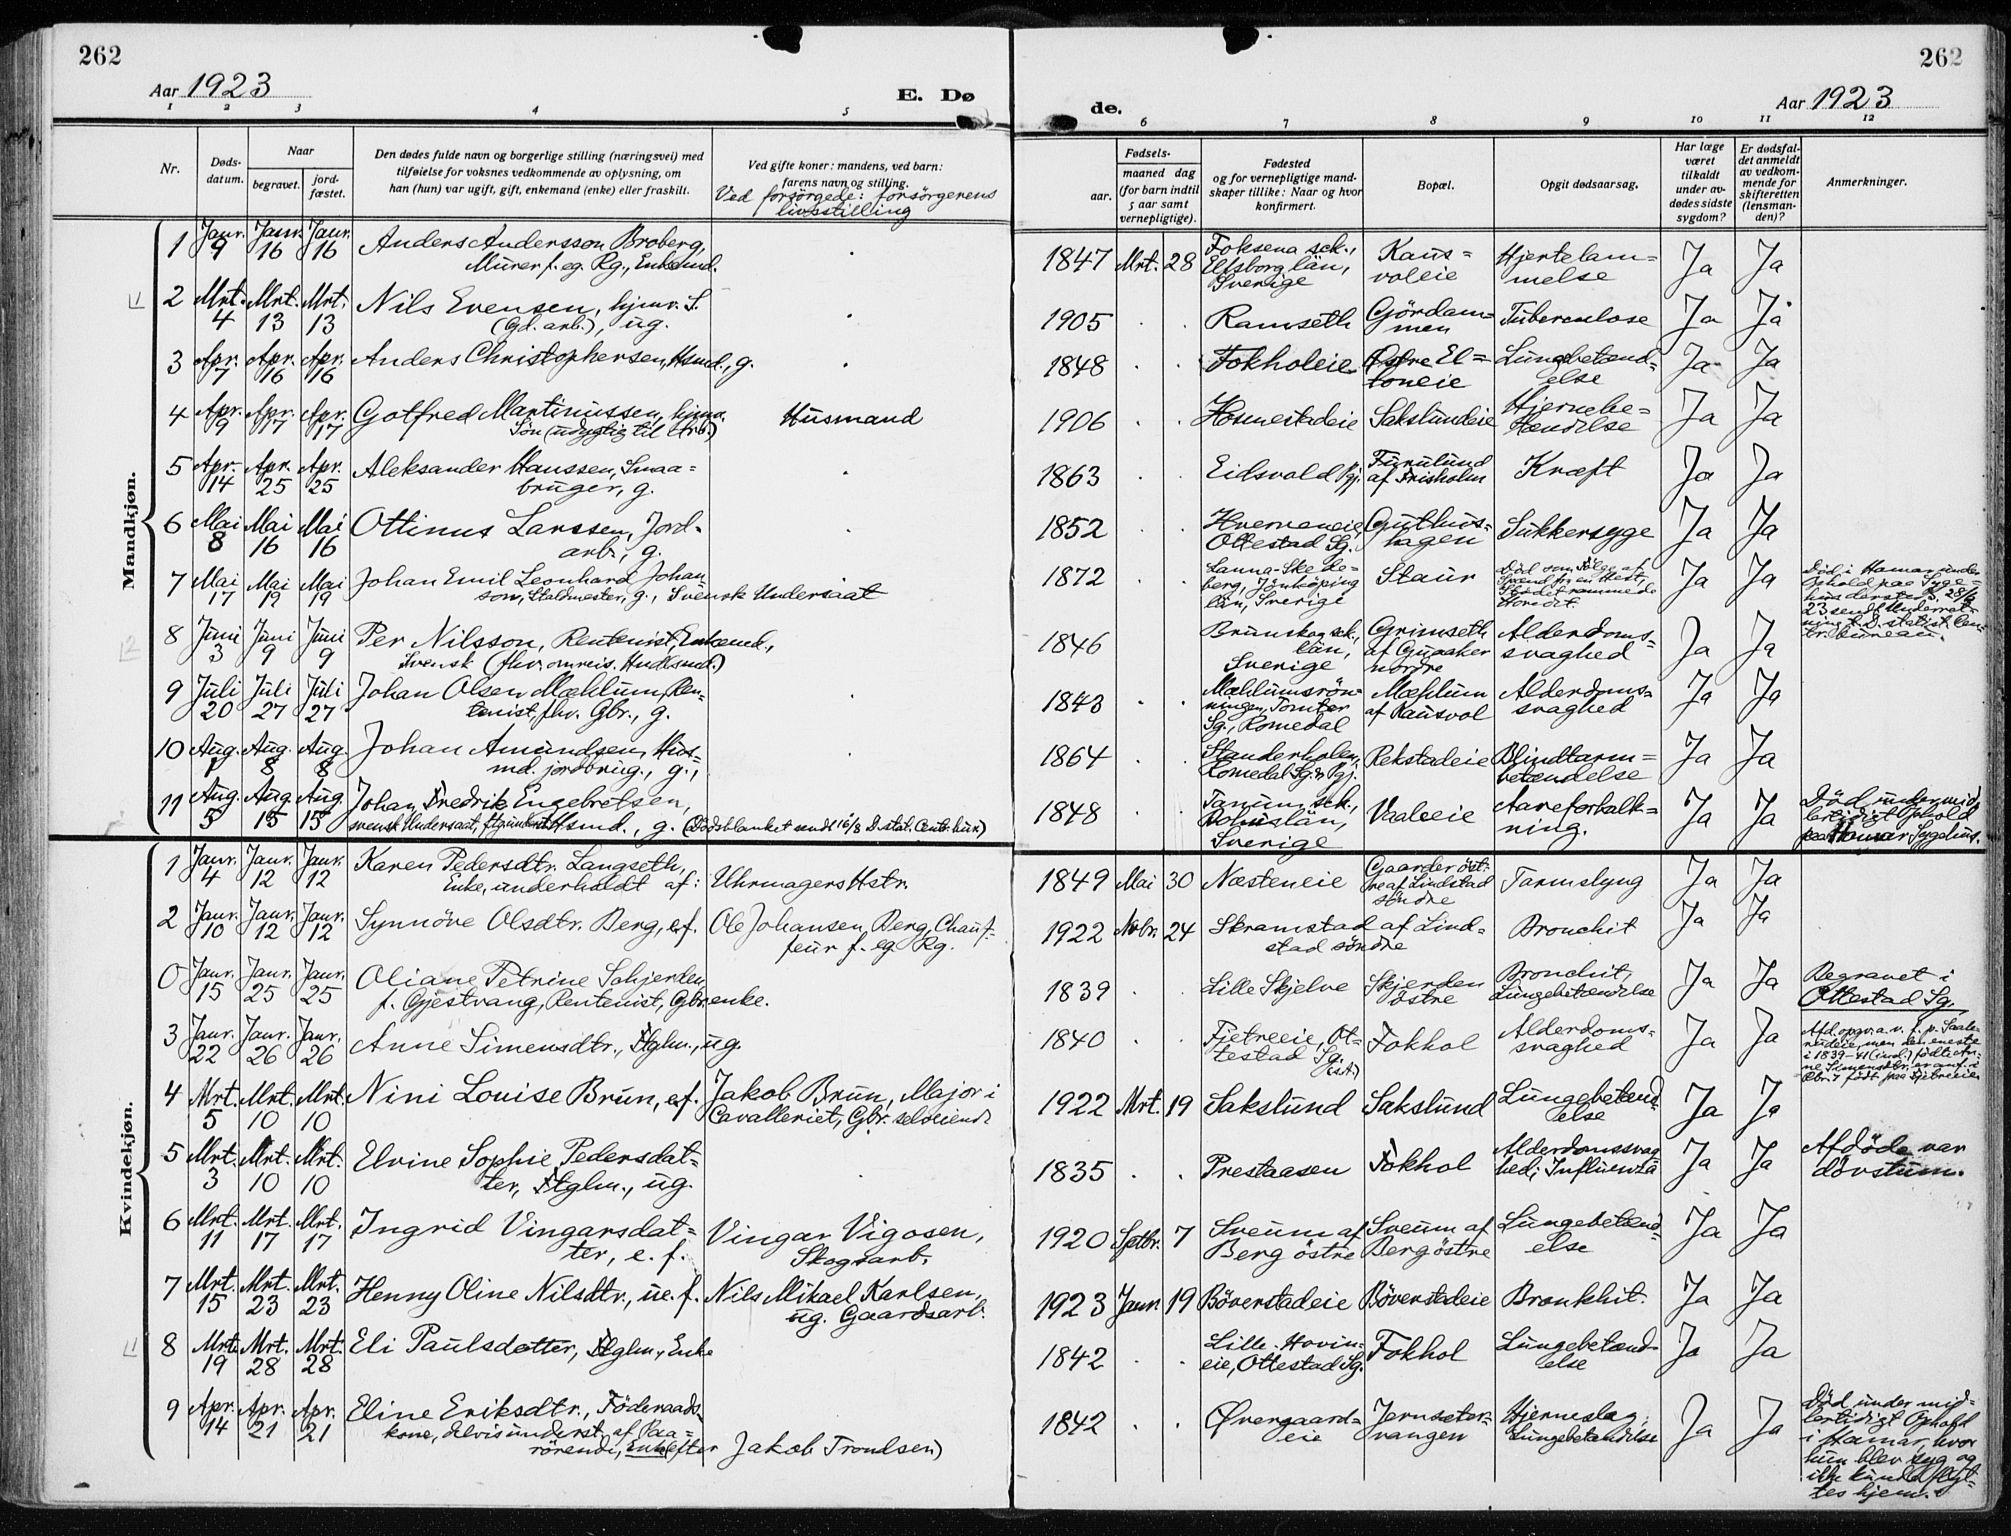 262
262
Aar 1923
E. Dø
de.
Aar 1923
1 2 3 4 5 6 7 8 9 10 11 12
Nr.
Døds-
datum.
Naar
begravet.
jord-
fæstet.
Den dødes fulde navn og borgerlige stilling (næringsvei) med
tilføielse for voksnes vedkommende av oplysning, om
han (hun) var ugift, gift, enkemand (enke) eller fraskilt.
Ved gifte koner: mandens, ved barn:
farens navn og stilling.
Ved forsörgede: forsörgerens
livsstilling
Fødsels-
aar.
maaned dag
(for barn indtil
5 aar samt
vernepligtige).
Fødested
og for vernepligtige mand-
skaper tillike: Naar og hvor
konfirmert.
Bopæl.
Opgit dødsaarsag.
Har læge
været
tilkaldt
under av-
dødes sidste
sygdom?
Er dødsfal-
det anmeldt
av vedkom-
mende for
skifteretten
(lensman-
den)?
Anmerkninger.
Mandkjøn.
1 Janr. 9 Janr. 16 Janr. 16 Anders Andersson Broberg,
Murer f. eg. Rg., Enkemd.
1847 Mrt. 28 Foksena sck.,
Elfsborg län,
Sverige
Kaus=
voleie
Hjertelam=
melse
Ja Ja
2 Mrt. 4 Mrt. 13 Mrt. 13 Nils Evensen, hjmv. S.
(Gd. arb.), ug.
1905 Ramseth Gördam=
men
Tuberculose Ja Ja
3 Apr. 7 Apr. 16 Apr. 16 Anders Christophersen, Hsmd., g.
1848 Fokholeie Østre El=
toneie
Lungebetænd=
else
Ja Ja
4 Apr. 9 Apr. 17 Apr. 17 Gotfred Martinussen, hjmv.
Sön (udygtig til Arb.)
Husmand
1906 Hosmestadeie Sakslundeie Hjernebe=
tændelse
Ja Ja
5 Apr. 14 Apr. 25 Apr. 25 Aleksander Hanssen, Smaa=
bruger, g.
1863 Eidsvold Pgj. Furulund
af Frisholm
Kræft Ja Ja
6 Mai 8 Mai 16 Mai 16 Ottinus Larssen, Jord=
arb., g.
1852 Hverveneie,
Ottestad Sg.
Guthus=
hagen
Sukkersyge Ja Ja
7 Mai 17 Mai 19 Mai 19 Johan Emil Leonhard Johan=
son, Staldmester, g., Svensk Undersaat
1872
berg, Jönköping
län, Sverige
Staur
Död som Fölge af
Ja Ja
Död i Hamar under
Ophold paa Syge=
8 Juni 3 Juni 9 Juni 9 Per Nilsson, Rentenist, Enkemd.,
Svensk (fhv. omreis. Hndlsmd.)
1846 Brunskog sck.,
län,
Sverige
Grimseth
af Gusaker
nordre
Alderdoms=
svaghed
Ja Ja
9 Juli 20 Juli 27 Juli 27 Johan Olsen Mæhlum, Ren=
tenist, fhv. Gbr., g.
1843 Mæhlumsrön=
ningen, Tomter
Sg., Romedal
Mæhlum
af Kausvol
Alderdoms=
svaghed
Ja Ja
10 Aug. 1 Aug. 8 Aug. 8 Johan Amundsen, Hus=
md. jordbrug., g.,
1864 Standerholen,
Romedal Sg. & Pgj.
Rekstadeie Blindtarm=
betændelse
Ja Ja
11 Aug. 5 Aug. 15 Aug. 15 Johan Fredrik Engebretsen,
svensk Undersaat, Hsmd., g. (Dödsblanket sendt 16/8 D. stat. Centr. bur.)
1848 Tanum sck.,
Bohuslän,
Sverige
Vaaleeie Aareforkalk=
ning.
Ja Ja
Död under mid=
lertidigt Ophold
paa Hamar Sygehus.
Kvindekjøn.
1 Janr. 4 Janr. 12 Janr. 12 Karen Pedersdtr. Langseth,
Enke, underholdt af: Uhrmagers Hstr.
1849 Mai 30 Næsteneie Gaarder öst=
re af Lindstad
söndre
Tarmslyng Ja Ja
2 Janr. 10 Janr. 12 Janr. 12 Synnöve Olsdtr. Berg, e.f. Ole Johansen Berg, Chauf=
feur f. eg. Rg.
1922 Nvbr. 24 Skramstad af Lind=
stad söndre
Bronchit Ja Ja
0 Janr. 15 Janr. 25 Janr. 25 Oliane Petrine Schjerden,
f. Gjestvang, Rentenist, Gbr.enke.
1839 Lille Skjelve Skjerden
östre
Bronchit,
Lungebetændelse
Ja Ja
Begravet i
Ottestad Sg.
3 Janr. 22 Janr. 26 Janr. 26 Anne Simensdtr., Ftglm., ug.
1840 Fjetreeie, Ot=
testad Sg.
Fokhol Alderdoms=
svaghed
Ja Ja
i 1839-41 (incl.) födte An=
ne Simensdtr. er anf. i
Kbr. 7 födt paa Fjetreeie
4 Mrt. 5 Mrt. 10 Mrt. 10 Nini Louise Brun, e.f. Jakob Brun, Major i
Cavalleriet, Gbr. selveiende
1922 Mrt. 19 Sakslund Sakslund Lungebetænd=
else
Ja Ja
5 Mrt. 3 Mrt. 10 Mrt. 10 Elvine Sophie Pedersdat=
ter, Ftglm., ug.
1835 Prestaasen Fokhol Alderdomssvag=
hed; Influenza
Ja Ja
Afdöde var
dövstum.
6 Mrt. 11 Mrt. 17 Mrt. 17 Ingrid Vingarsdat=
ter, e. f.
Vingar Vigosen,
Skogsarb.
1920 Sptbr. 7 Sveum af
Berg östre
Sveum af
Berg östre
Lungebetænd=
else
Ja Ja
7 Mrt. 15 Mrt. 23 Mrt. 23 Henny Oline Nilsdtr., ue. f. Nils Mikael Karlsen,
ug. Gaardsarb.
1923 Janr. 19 Böverstadeie Böverstadeie Bronkhit. Ja Ja
8 Mrt. 19 Mrt. 28 Mrt. 28 Eli Paulsdatter, Ftglm., Enke
1842 Lille-Hovin=
eie, Ottestad Sg.
Fokhol Lungebetænd=
else
Ja Ja
9 Apr. 14 Apr. 21 Apr. 21 Eline Eriksdtr., Föderaads=
kone, delvis underst. af Paa=
rörende, Enke (efter Jakob Trondsen)
1842 Övergaard=
eie
Jernseter=
vangen
Hjerneslag,
Lungebetændelse
Ja Ja
Död under mid=
lertidigt Ophold
i Hamar, hvor
hun blev syg og
ikke kunde flyt=
tes hjem.